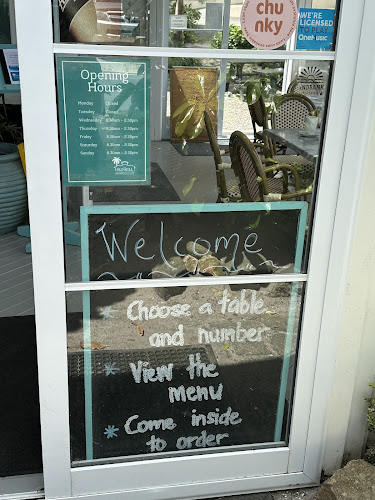 chu
nky
WE'RE
LICENSED
TO PLAY
OneMusic
Opening
Hours
Monday Closed
Tuesday Closed
Wednesday 8.30am - 2.30pm
Thursday 8.30am - 2.30pm
Friday 8.30am - 2.30pm
Saturday 8.30am - 2.30pm
Sunday 8.30am - 2.30pm
Welcome
* Choose a table
and number
* View the
menu
* Come inside
to order